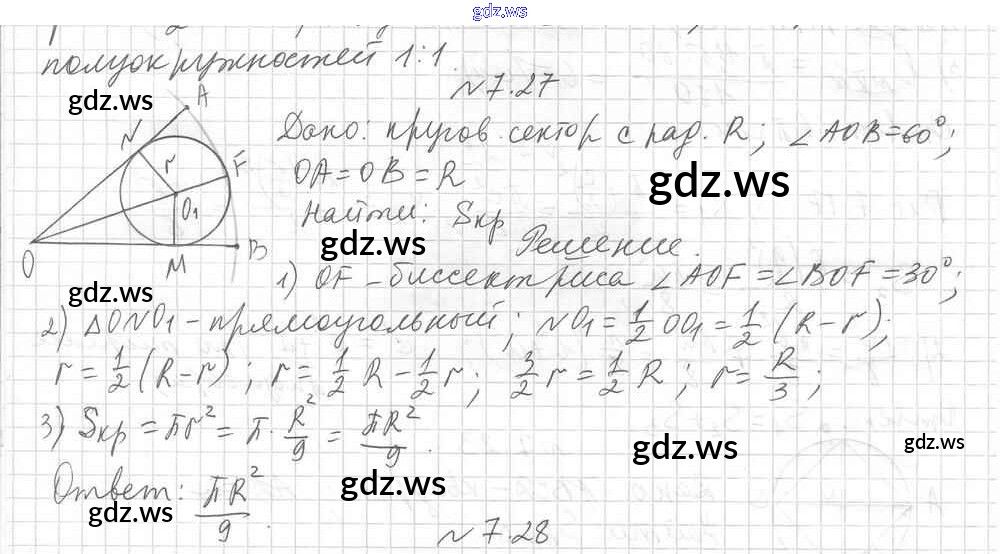 gdz.ws
полуокружностей 1:1.
№7.27
gdz.ws
A
N
Дано: кругов. сектор с рад. R; ∠AOB=60°;
r
F
OA=OB=R
gdz.ws
O₁
Найти: Sкр
gdz.ws
Решение.
O
M
B
1) OF-биссектриса ∠AOF=∠BOF=30°;
gdz.ws
2) ΔONO₁-прямоугольный; NO₁=1/2 OO₁=1/2 (R-r);
r=1/2(R-r); r=1/2 R-1/2 r; 3/2 r=1/2 R; r=R/3;
3) Sкр=πr²=π·R²/9=πR²/9.
gdz.ws
gdz.ws
Ответ: πR²/9.
gdz.ws
gdz.ws
№7.28